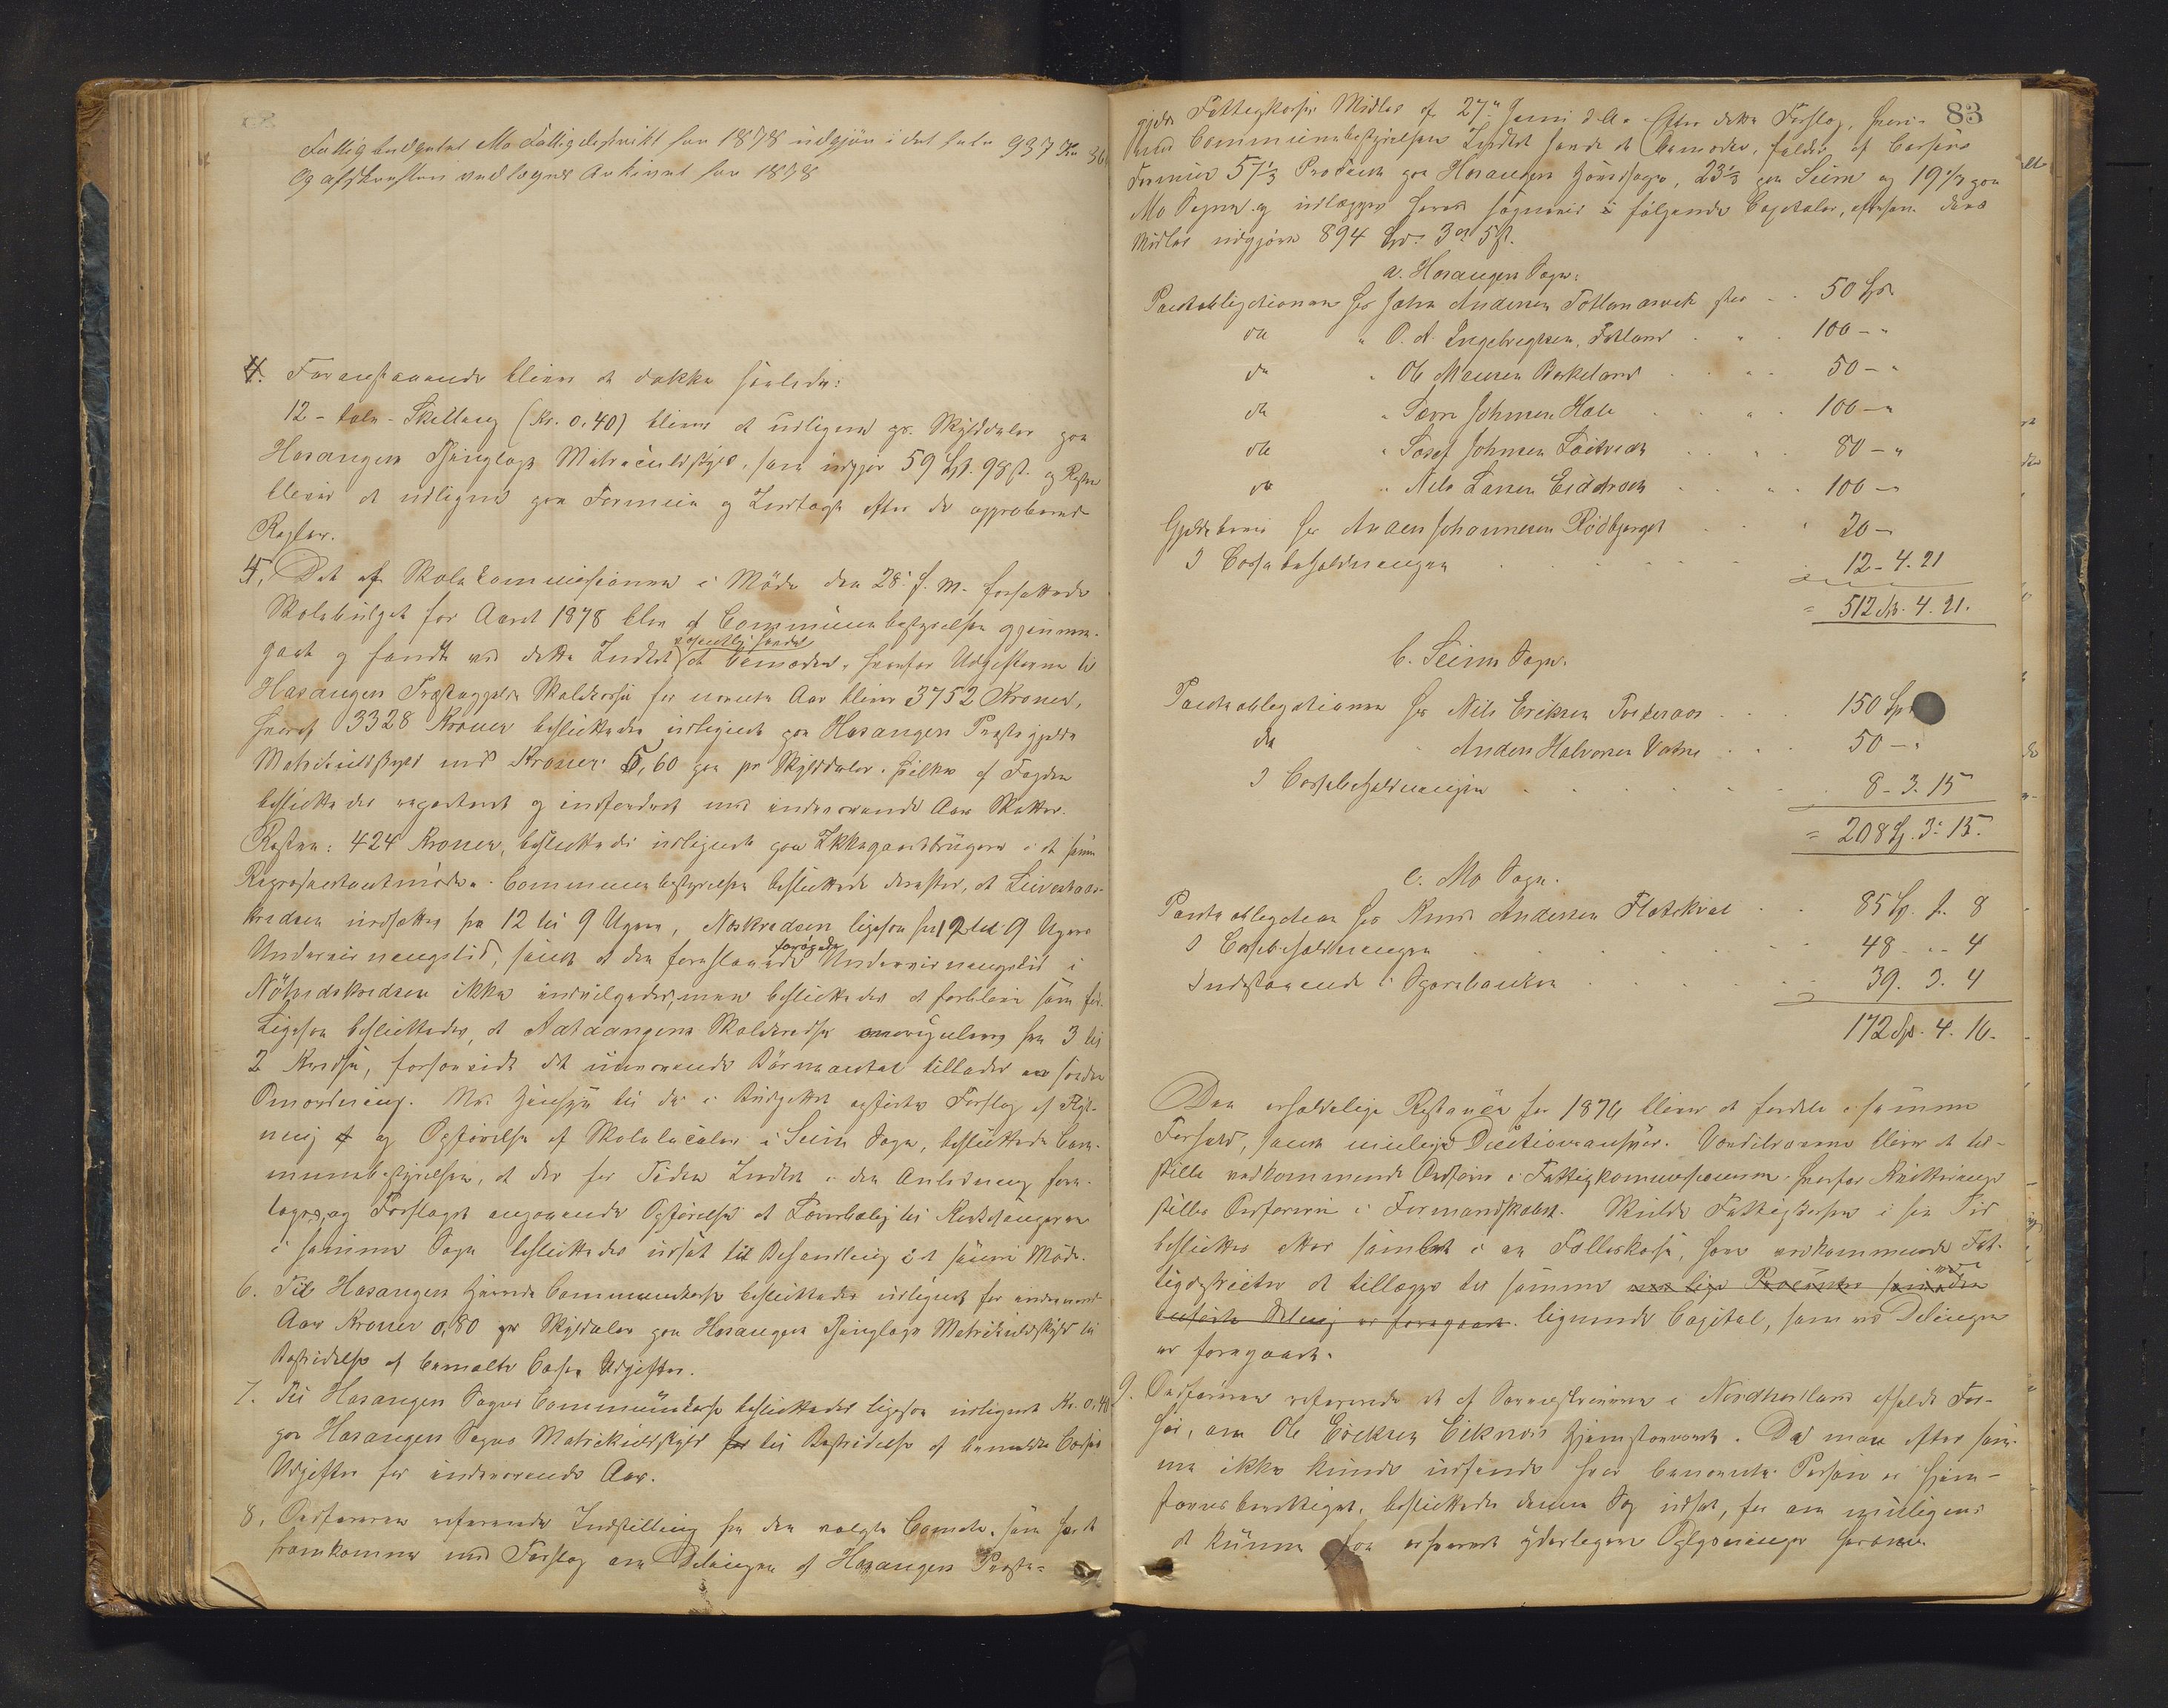 Fattigbudgetet Mo Fattigdistrikt for 1878 udgjør i det hele 937 Kr 36
Og afskreften vedlægges Arkivet for 1878
4. Foranstaaende bliver at dække saaledes:
12 - tolv - Skilling (Kr. 0,40) bliver at udligne pr. Skylddaler paa
Hosangers Thinglags Matriculskyld, som udgjør 59 98 ß. og Resten
bliver at udligne paa Formue og Indtægt efter de approberede
Regler.
5. Det af Skolekommissionen i Møde den 28. f. M. forfattede
Skolebudget for Aaret 1878 blev af Communebestyrelsen gjennem-
gaaet og fandt ved dette Intet væsentligt at bemærke, hvorfor Udgifterne til
Hosangers Præstegjelds Skolekasse for næste Aar bliver 3752 Kroner,
hvoraf 3328 Kroner besluttedes udlignet paa Hosangers Præstegjelds
Matriculskyld med Kroner 5,60 paa pr Skylddaler, hvilke af Fogden
besluttedes repartert og indfordret med indeværende Aars Skatter.
Resten: 424 Kroner, besluttedes udlignet paa Ikkegaardbrugere i et
Repræsentantmøde. Communebestyrelsen besluttede derefter, at
kredsen nedsættes fra 12 til 9 Uger, Noskredsen ligesaa fra 12 til 9 Ugers
Undervisningstid, samt at den foreslaaede forøgede Undervisningstid i
kredsen ikke indvilgedes, men besluttedes at forblive som før.
Ligesaa besluttedes, at Aataangens Skolekredse omreguleres fra 3 til
2 Kredse, forsaavidt det nuværende Børneantal tillader en saadan
Omordning. Med Hensyn til det i Budgettet opførte Forslag af Flyt-
ning af og Opførelse af Skolelocaler i Seim Sogn, besluttede Com-
munebestyrelsen, at der for Tiden Intet i den Anledning fore-
tages, og Forslaget angaaende Opførelse af til
i samme Sogn besluttedes udsat til Behandling i et senere Møde.
6. Til Hosangers Herreds Communekasse besluttedes udlignet for indeværende
Aar Kroner 0,80 pr Skylddaler paa Hosangers Thinglags Matrikulskyld til
Bestridelse af bemeldte Casses Udgifter.
7. Til Hosangers Sogns Communekasse besluttedes ligesaa udlignet Kr. 0,40
paa Hosangers Sogns Matrikulskyld for til Bestridelse af bemeldte Casses
Udgifter for indeværende Aar.
8. Ordføreren refererede Indstilling fra den valgte Comite, som havde
fremkommet med Forslag om Delingen af Hosangers Præste-
83
gjelds Fattigkasses Midler af 27de Juni d. A. Efter dette Forslag, hvori-
mod Communebestyrelsen Intet fandt at bemærke, falder af Cassens
Formue 57 1/3 Procent paa Hosangers Hovedsogn, 23 1/3 paa Seim og 19 1/3 paa
Mo Sogn og udlægges hvert Sogn i følgende Capitaler, eftersom dens
Midler udgjøre 894 Spd. 3 ort 5 ß.
a. Hosangers Sogn:
Pantobligationen fra John Andersen Totland stor . . 50 Spd.
do " O. A. Ingebregtsen, Totland . " . 100 - "
do " Ole Monsen Birkeland . . . 50 - "
do " Johnsen Hole . . . 100 - "
do " Josef Johnsen . . . 80 - "
do " Nils Larsen . . . 100 -
Gjeldsbrev fra Anders Johannesen Rødbjerget . . 20 -
I Cassebeholdningen . . . . 12 - 4. 21
= 512 Sp. 4. 21.
b. Seims Sogn.
Pantobligationen fra Nils Eriksen . . . 150 Spd
do " Anders Halvorsen Vatne . . . 50 - "
I Cassebeholdningen . . . . 8 - 3. 15
= 208 Sp. 3. 15.
c. Mo Sogn.
Pantobligation fra Knud Andersen . . 85 Sp. 8
I Cassebeholdningen . . . . 48 - " 4
Indestaaende i Sparebanken . . . . 39. 3. 4
172 Sp. 4. 16.
Den erholdelige Restance for 1876 bliver at fordele i samme
Forhold, samt mulige Auctionsansvar. Værdibrevene bliver at til-
stille vedkommende Ordfører i Fattigkommissionen, hvorfor Kvittering
stilles Ordføreren i Formandskabet. Skulde Fattigkassen i sin Tid
besluttes atter samlet i en Felleskasse, har vedkommende Fat-
tigdistricter at tillægge til samme med lige Procenter som ved den
anførte Deling er foregaaet. lignende Capital, som ved Delingen
er foregaaet.
9. Ordføreren refererede et af Sorenskriveren i Nordhordland afholdt For-
hør, om Ole Ericksen Eiknes Hjemstavnsret. Da man efter sam-
me ikke kunde udfinde hvor benævnte Person er Hjem-
stavnsberettiget, besluttedes denne Sag udsat, for om muligens
at kunne faa erhvervet yderligere Oplysninger herom.